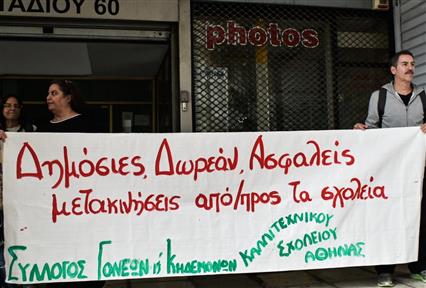 ΤΑΔΙΟΥ 60
photos
Δημόσιες, Δωρεάν, Ασφαλείς
μετακινήσεις από/προς τα σχολεία
ΣΥΛΛΟΓΟΣ ΓΟΝΕΩΝ ή ΚΗΔΕΜΟΝΩΝ
ΚΑΛΛΙΤΕΧΝΙΚΟΥ
ΣΧΟΛΕΙΟΥ
ΑΘΗΝΑΣ